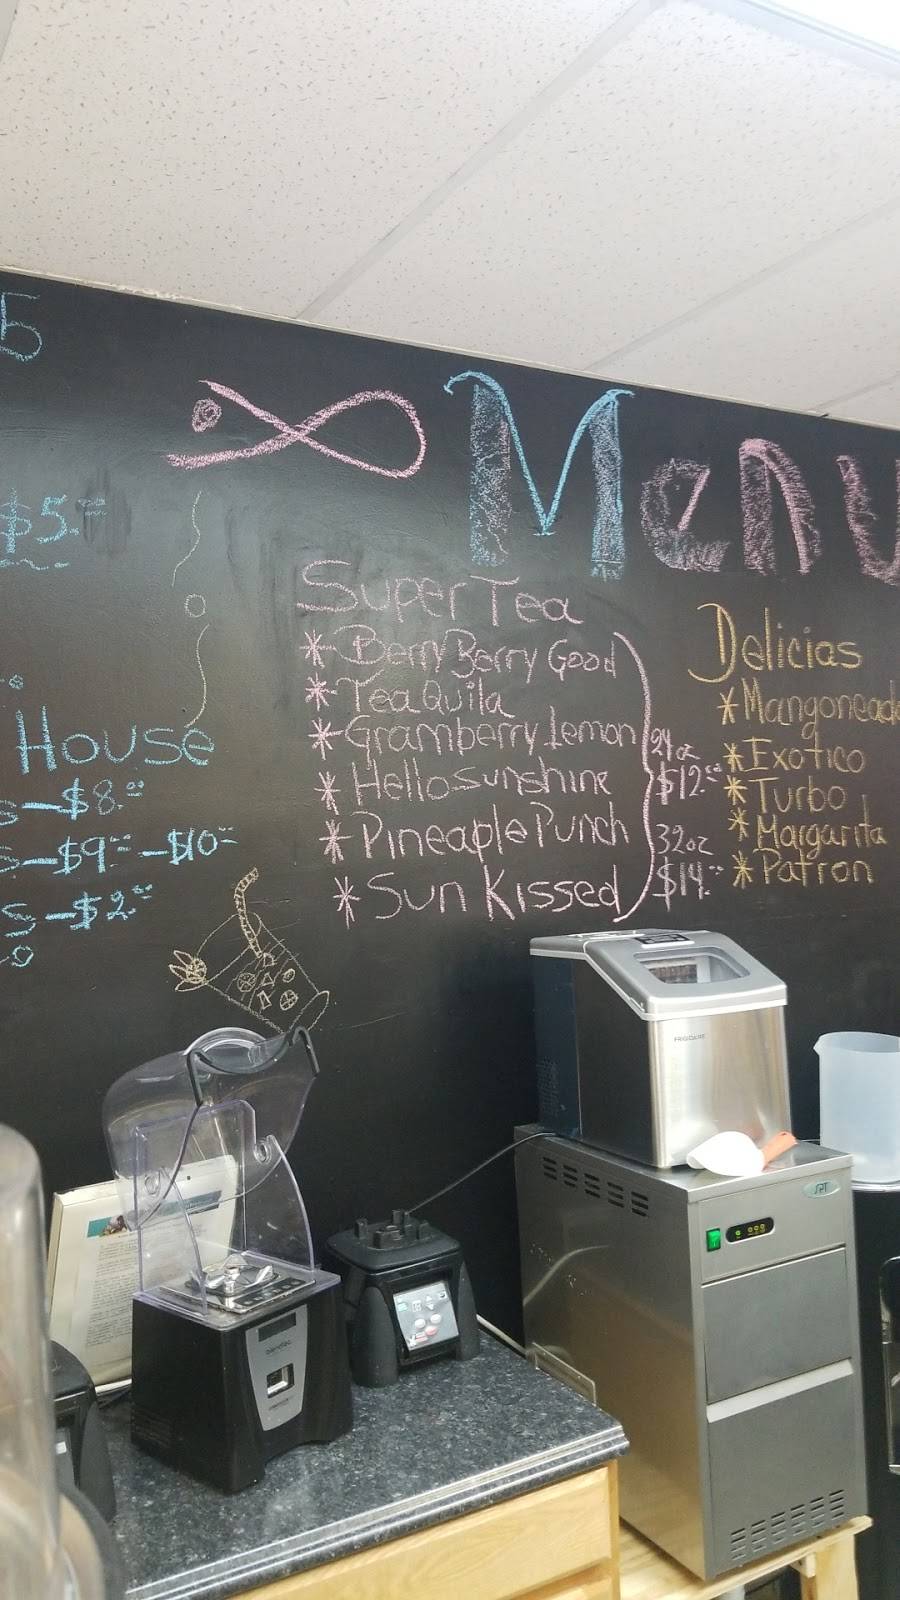 5
$5.00
Menu
House
s-$8.00
s-$9.00-$10.00
s-$2.00
Super Tea
*Berry Berry Good
*TeaQuila
*Gramberry Lemon
*Hello sunshine
*Pineaple Punch
*Sun Kissed
24oz
$12.00
32oz
$14.00
Delicias
*Mangonead
*Exotico
*Turbo
*Margarita
*Patron
FRIGIDAIRE
SPT
blendtec